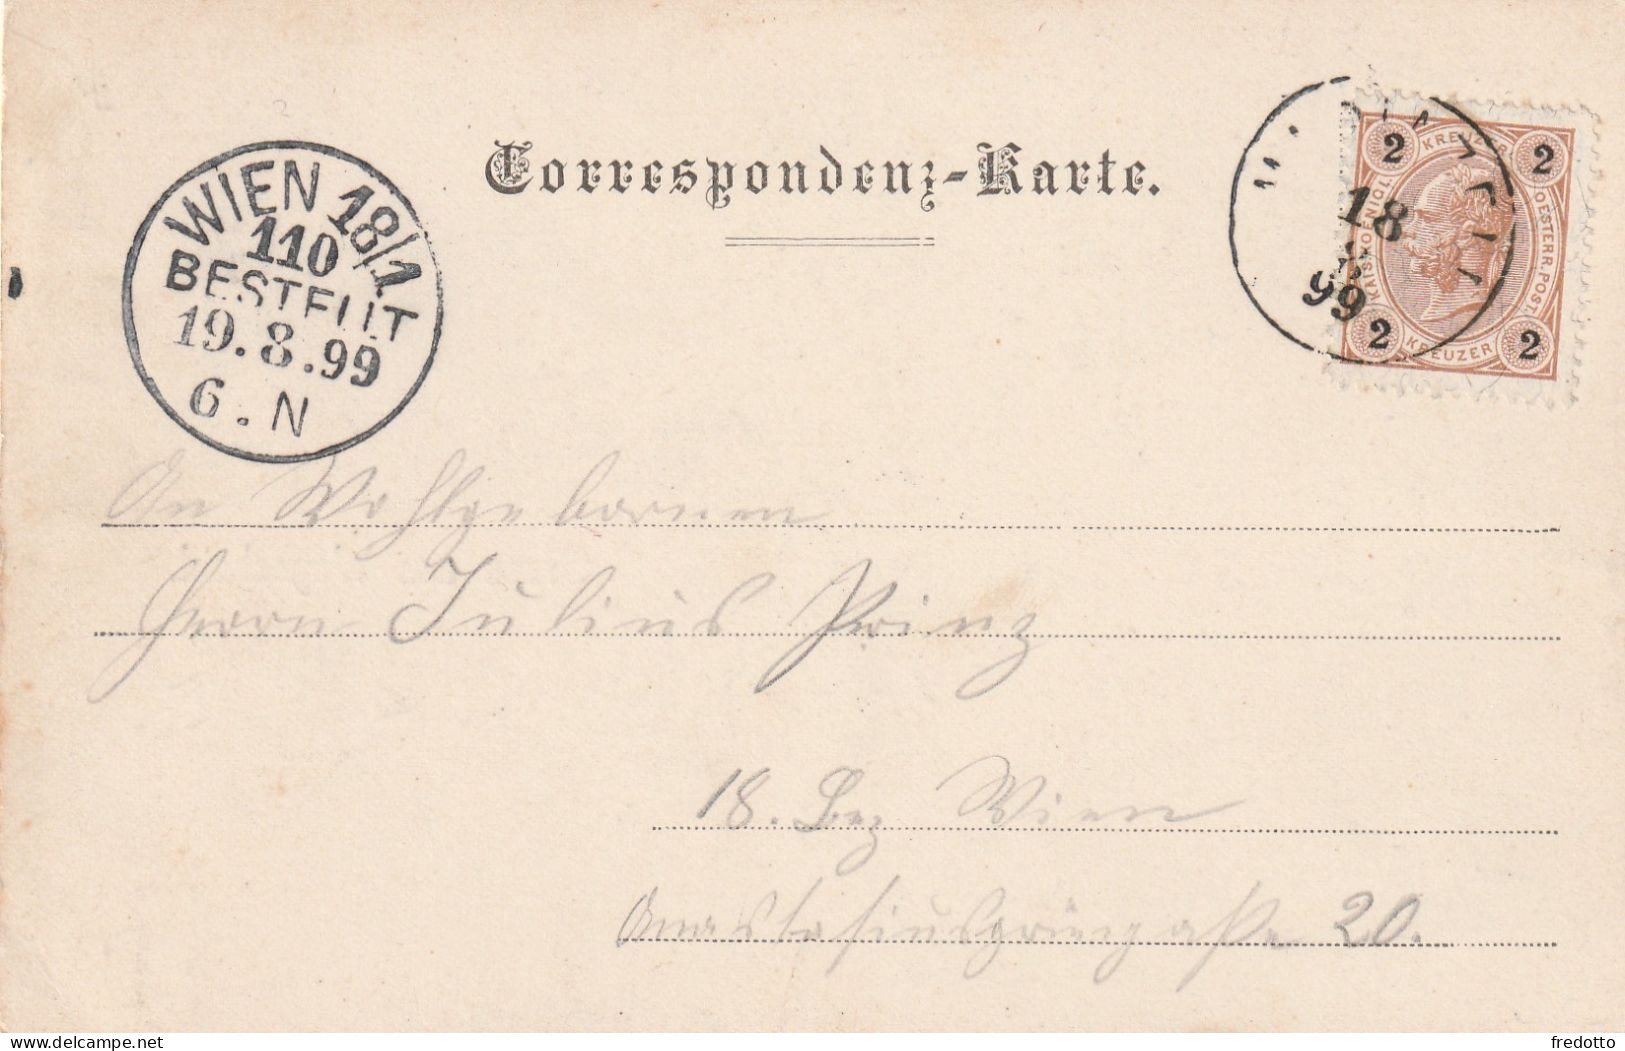 Correspondenz-Karte.
WIEN 18/1
110
BESTELLT
19.8.99
6.N
18
8
99
2 KREUZER 2
KAIS. KOENIGL. OESTERR. POST.
2 KREUZER 2
An Wohlgebornen
Herrn Julius Prinz
18. Bez Wien
Anastasiusgrüngaße 20.
fredotto